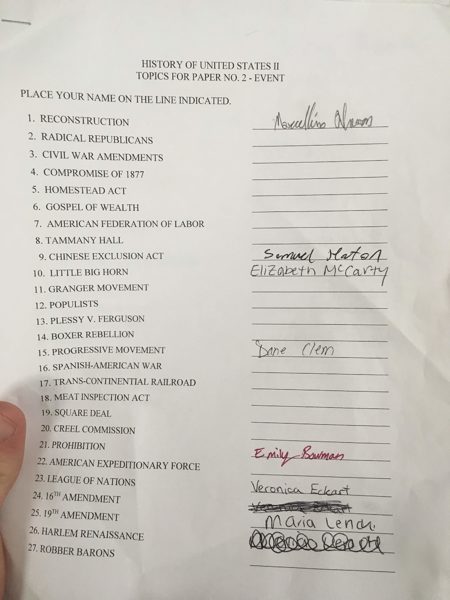 HISTORY OF UNITED STATES II
TOPICS FOR PAPER NO. 2 - EVENT
PLACE YOUR NAME ON THE LINE INDICATED.
1. RECONSTRUCTION Marcellino
2. RADICAL REPUBLICANS
3. CIVIL WAR AMENDMENTS
4. COMPROMISE OF 1877
5. HOMESTEAD ACT
6. GOSPEL OF WEALTH
7. AMERICAN FEDERATION OF LABOR
8. TAMMANY HALL
9. CHINESE EXCLUSION ACT Samuel Haton
10. LITTLE BIG HORN Elizabeth McCarty
11. GRANGER MOVEMENT
12. POPULISTS
13. PLESSY V. FERGUSON
14. BOXER REBELLION
15. PROGRESSIVE MOVEMENT Dane Clem
16. SPANISH-AMERICAN WAR
17. TRANS-CONTINENTAL RAILROAD
18. MEAT INSPECTION ACT
19. SQUARE DEAL
20. CREEL COMMISSION
21. PROHIBITION Emily Bowman
22. AMERICAN EXPEDITIONARY FORCE
23. LEAGUE OF NATIONS Veronica Eckart
24. 16TH AMENDMENT
25. 19TH AMENDMENT Maria
26. HARLEM RENAISSANCE
27. ROBBER BARONS